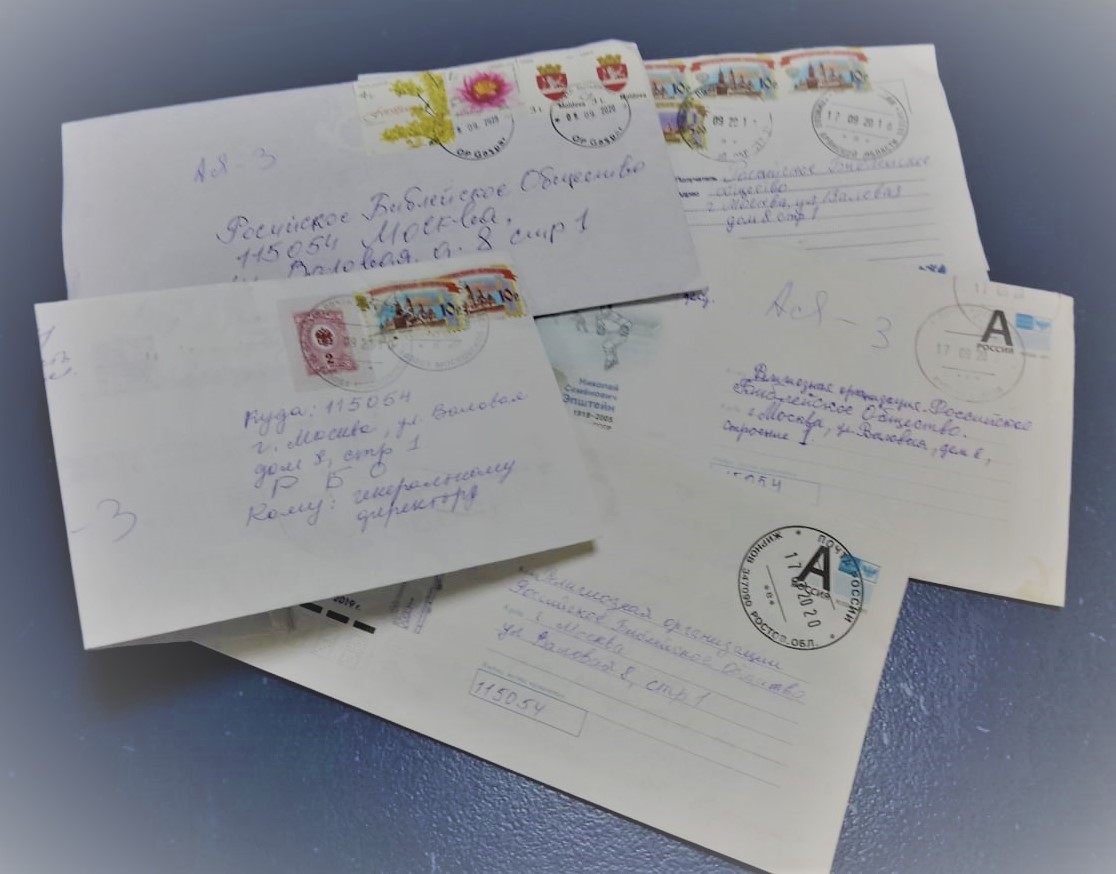 АЯ-3
Moldova
Moldova
08 09 2020
OP Gaspar
Российское Библейское Общество
115054 Москва,
ул. Валовая, д. 8 стр 1
10р
10р
17 09 20
Получатель Российское Библейское
общество
г Москва, ул Валовая
дом 8 стр 1
2
10р
10р
Куда: 115054
г. Москва, ул. Валовая
дом 8, стр 1
Р Б О
Кому: генеральному
директору
-3
Николай
Семёнович
Эпштейн
1919-2005
АЯ-3
А
РОССИЯ
17 09 20
Религиозная организация Российское
Библейское Общество.
г Москва, ул Валовая, дом 8,
строение 1
2019 г.
ПОЧТА РОССИИ
А
РОССИЯ
17 2020
ЖИРНОВ 347090 РОСТОВ. ОБЛ.
Религиозная организации
Российское Библейское Общество
г Москва
ул Валовая 8, стр 1
115054